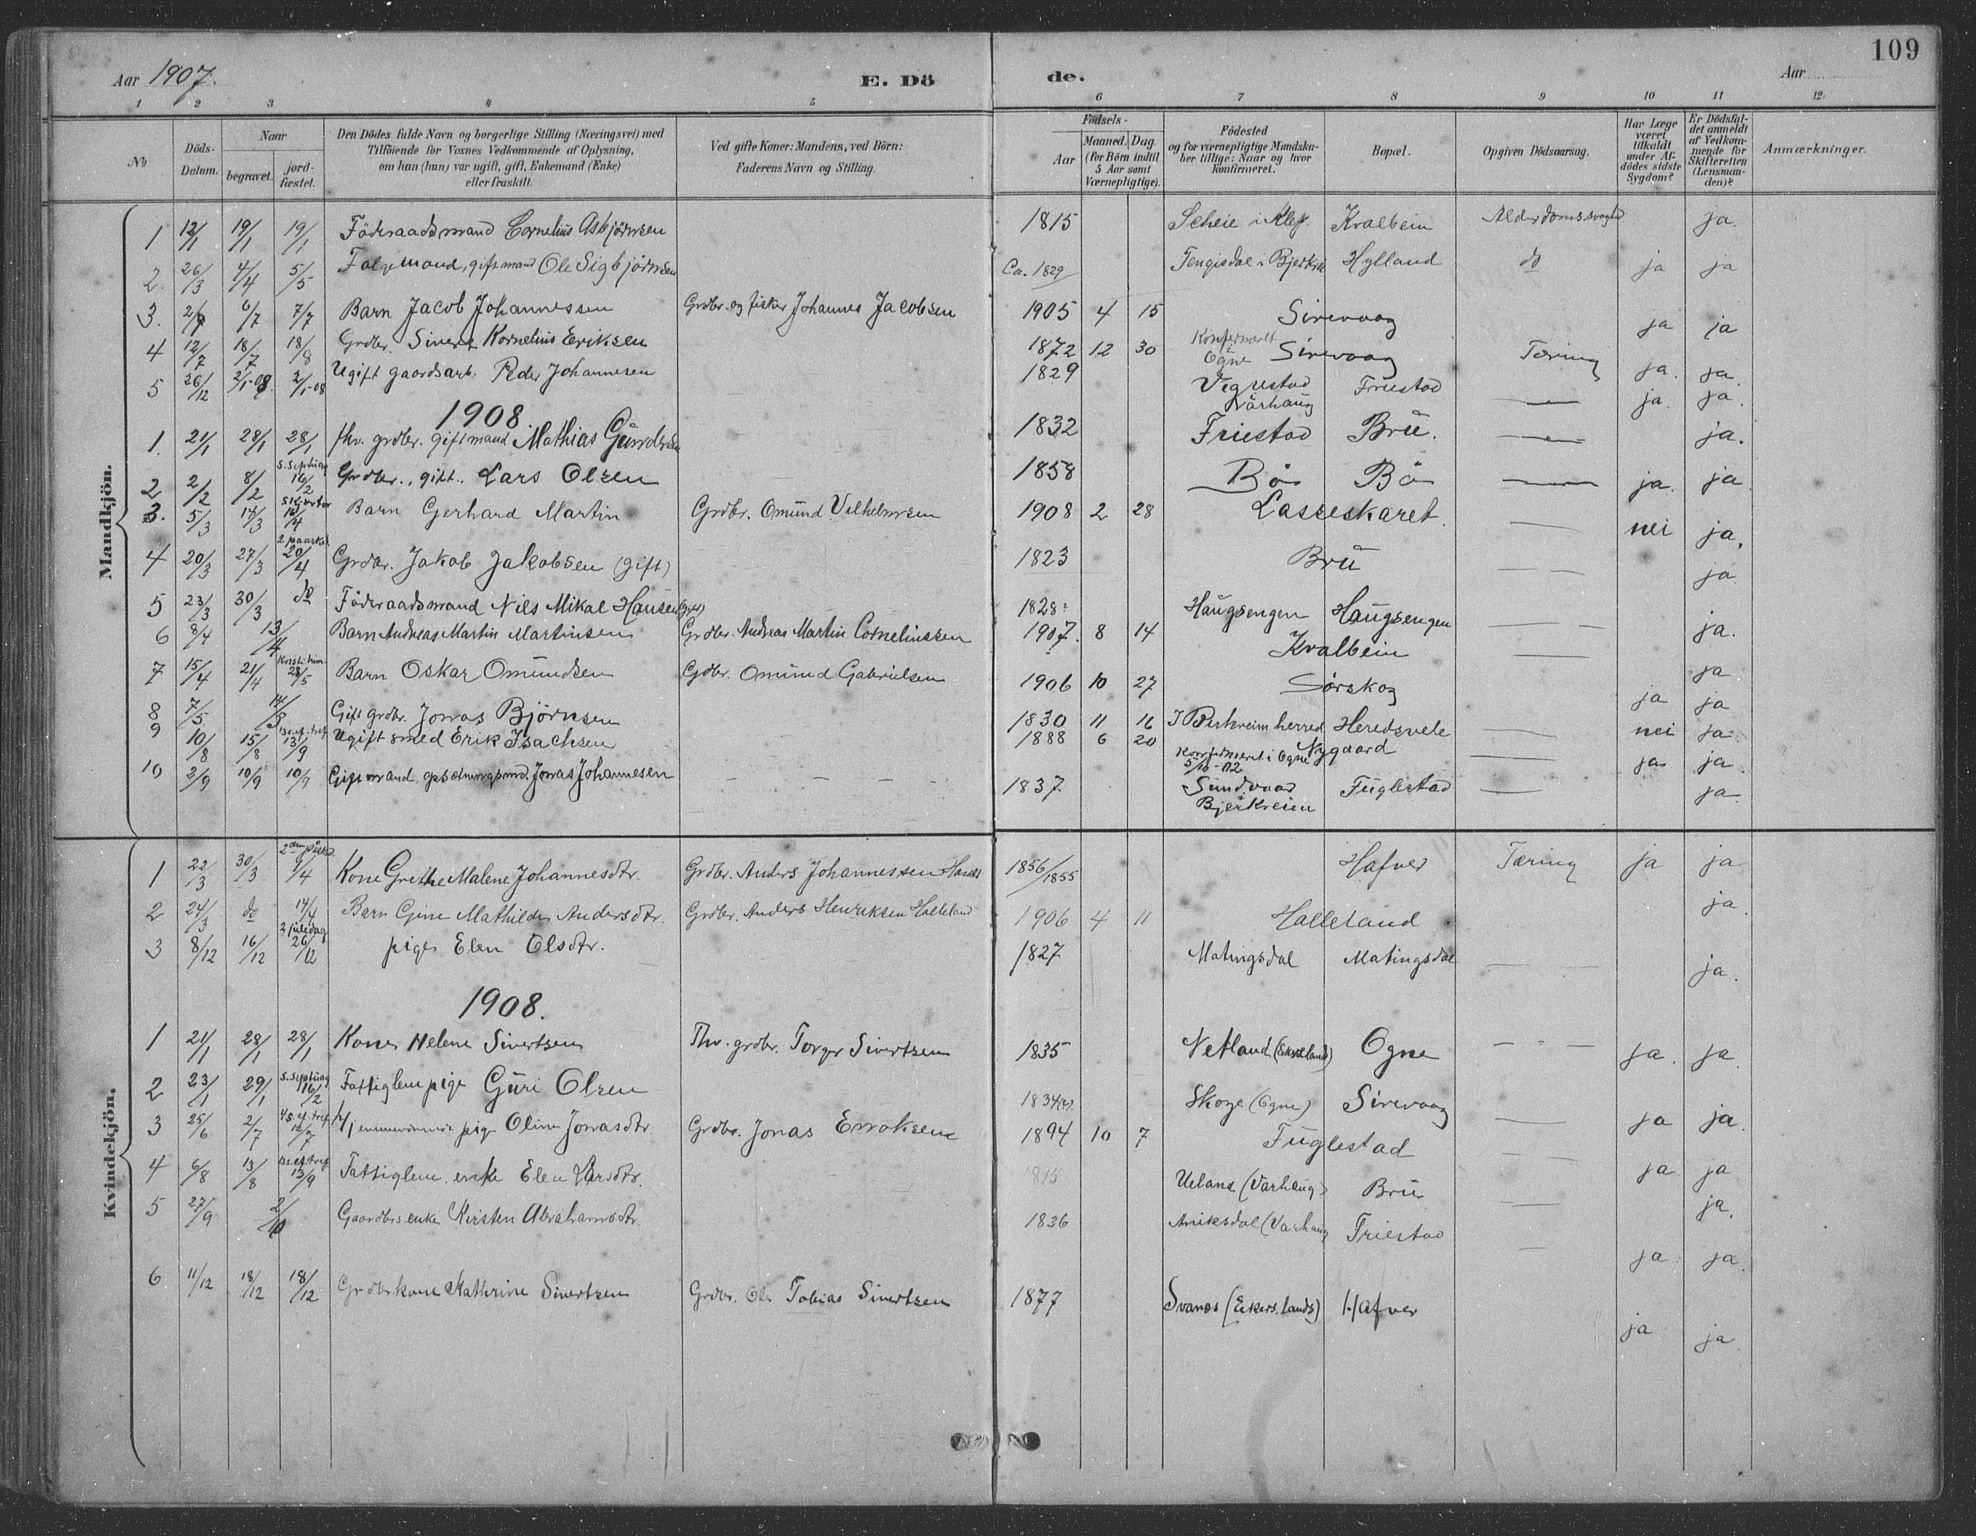 109
Aar 1907. E. Dö de. Aar
1 2 3 4 5 6 7 8 9 10 11 12
No
Döds-Datum.
Naar
begravet.
jord-fæstet.
Den Dödes fulde Navn og borgerlige Stilling (Næringsvei) med
Tilföiende for Voxnes Vedkommende af Oplysning,
om han (hun) var ugift, gift, Enkemand (Enke)
eller fraskilt.
Ved gifte Koner: Mandens, ved Börn:
Faderens Navn og Stilling.
Födsels-
Aar
Maaned. Dag
(for Börn indtil
5 Aar samt
Værnepligtige).
Födested
og for værnepligtige Mandska-
ber tillige: Naar og hvor
konfirmeret.
Bopæl.
Opgiven Dödsaarsag.
Har Læge
været
tilkaldt
under Af-
dödes sidste
Sygdom?
Er Dödsfal-
det anmeldt
af Vedkom-
mende for
Skifteretten
(Lensman-
den)?
Anmærkninger.
Mandkjön.
1 12/1 19/1 19/1 Föderaadsmand Cornelius Asbjörnsen 1815 Scheie i Klep. Kvalbein Alderdomssvaghed ja.
2. 26/3 4/4 5/5 Folgemand, gift mand Ole Sigbjörnsen Ca. 1829 Tengisdal i Bjerkr Hylland do ja ja
3. 2/7 6/7 7/7 Barn Jacob Johannessen Grdbr. og fisker Johannes Jacobsen 1905 4 15 Sirevaag ja ja
4 12/7 18/7 18/8 Grdbr. Sivert Kornelius Eriksen 1872 12 30 Konfirmeret Ogne Sirevaag Tæring ja. ja.
5 26/12 2/1-08 2/1-08 Ugift gaardsarb. Peder Johannesen 1829 Vigrestad Varhaug Friestad ja. ja.
1908.
1. 21/1 28/1 28/1 fhv. grdbr. gift mand Mathias Gundersen 1832 Friestad Bru. ja.
2 2/2 8/2 S. Septuag 16/2 Grdbr., gift., Lars Olsen 1858 Bö Bö ja. ja
3. 5/3 14/3 /4 Barn Gerhard Martin Grdbr. Omund Vilhelmsen 1908 2 28 Lasseskaret. nei ja.
4 20/3 27/3 2 paaskd 20/4 Grdbr. Jakob Jakobsen (gift) 1823 Bru ja
5 23/3 30/3 do Föderaadsmand Nils Mikal Hansen (gift) 1828 Haugsengen Haugsengen ja.
6 8/4 13/4 Barn Andreas Martin Martinsen Grdbr. Andreas Martin Corneliussen 1907. 8 14 Kvalbein ja
7 15/4 21/4 Kristi him 28/5 Barn Oskar Omundsen Grdbr. Omund Gabrielsen 1906 10 27 Sörskog ja ja
8 7/5 14/5 Gift grdbr. Jonas Björnsen 1830 11 16 I Birkreim herred Heredsvele nei ja.
9 10/8 15/8 13 s. ef. tref 13/9 Ugift smed Erik Isachsen 1888 6 20 Konfirmeret i Ogne 5/10-02 Nygaard ja. ja.
10 2/9 10/9 10/9 Gift mand, opsidningsmd. Jonas Johannesen 1837 Sundvaar Bjerkreim Fuglestad ja.
Kvindekjön.
1 22/3 30/3 2den påsked /4 Kone Grethe Malene Johannesdtr. Grdbr. Anders Johannessen 1856/1855 Hafver Tæring ja ja
2 24/3 do 14/4 Barn Gine Mathilde Andersdtr. Grdbr. Anders Henriksen Halleland 1906 4 11 Halleland ja.
3 8/12 16/12 2 juledag 26/12 pige Elen Olsdtr. 1827 Matingsdal Matingsdal ja.
1908.
1 21/1 28/1 28/1 Kone Helene Sivertsen Fhv. grdbr. Torger Sivertsen 1835 Netland (Ekersland) Ogne ja. ja.
2 23/1 29/1 S. Septuag 16/2 Fattiglem pige Guri Olsen 1834(?) Skoge (Ogne) Sirevaag ja ja.
3 25/6 2/7 4 s. ef. tref 12/7 pige Oline Jonasdtr. Grdbr. Jonas 1894 10 7 Fuglestad ja ja
4 6/8 13/8 13 s. ef. tref 13/9 Fattiglem. enke Elen 1815 Ueland (Varhaug) Bru ja.
5 27/9 2/10 Gaardbrs enke Kirsten Abrahamsdtr. 1836 Aniksdal (Varhaug Friestad ja ja.
6 11/12 18/12 18/12 Grdbrkone Kathrine Sivertsen Grdbr. Ole Tobias Sivertsen 1877 Svanes (Ekers. lands) Hafver ja ja